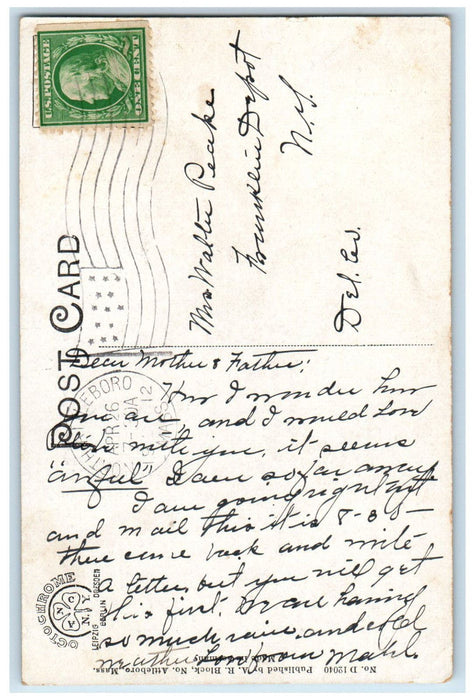 U.S. POSTAGE
ONE CENT
POST CARD
NORTH ATTLEBORO
APR 26
7-30A
1912
MASS.
Mrs Walter Peake
Franklin Depot
N.Y.
Del. Co.
Dear Mother & Father;
How I wonder how
you are, and I would love
with you, it seems
"awful" I am so far away
I am going right out
and mail this it is 8-30-
then come back and write
a letter, but you will get
this first. We are having
so much rain, and cold
weather. Love from Mabl.
OCTOCHROME
C.
N.Y.
LEIPZIG BERLIN DRESDEN
No. D 12040 Published by A. R. Block, No. Attleboro, Mass.